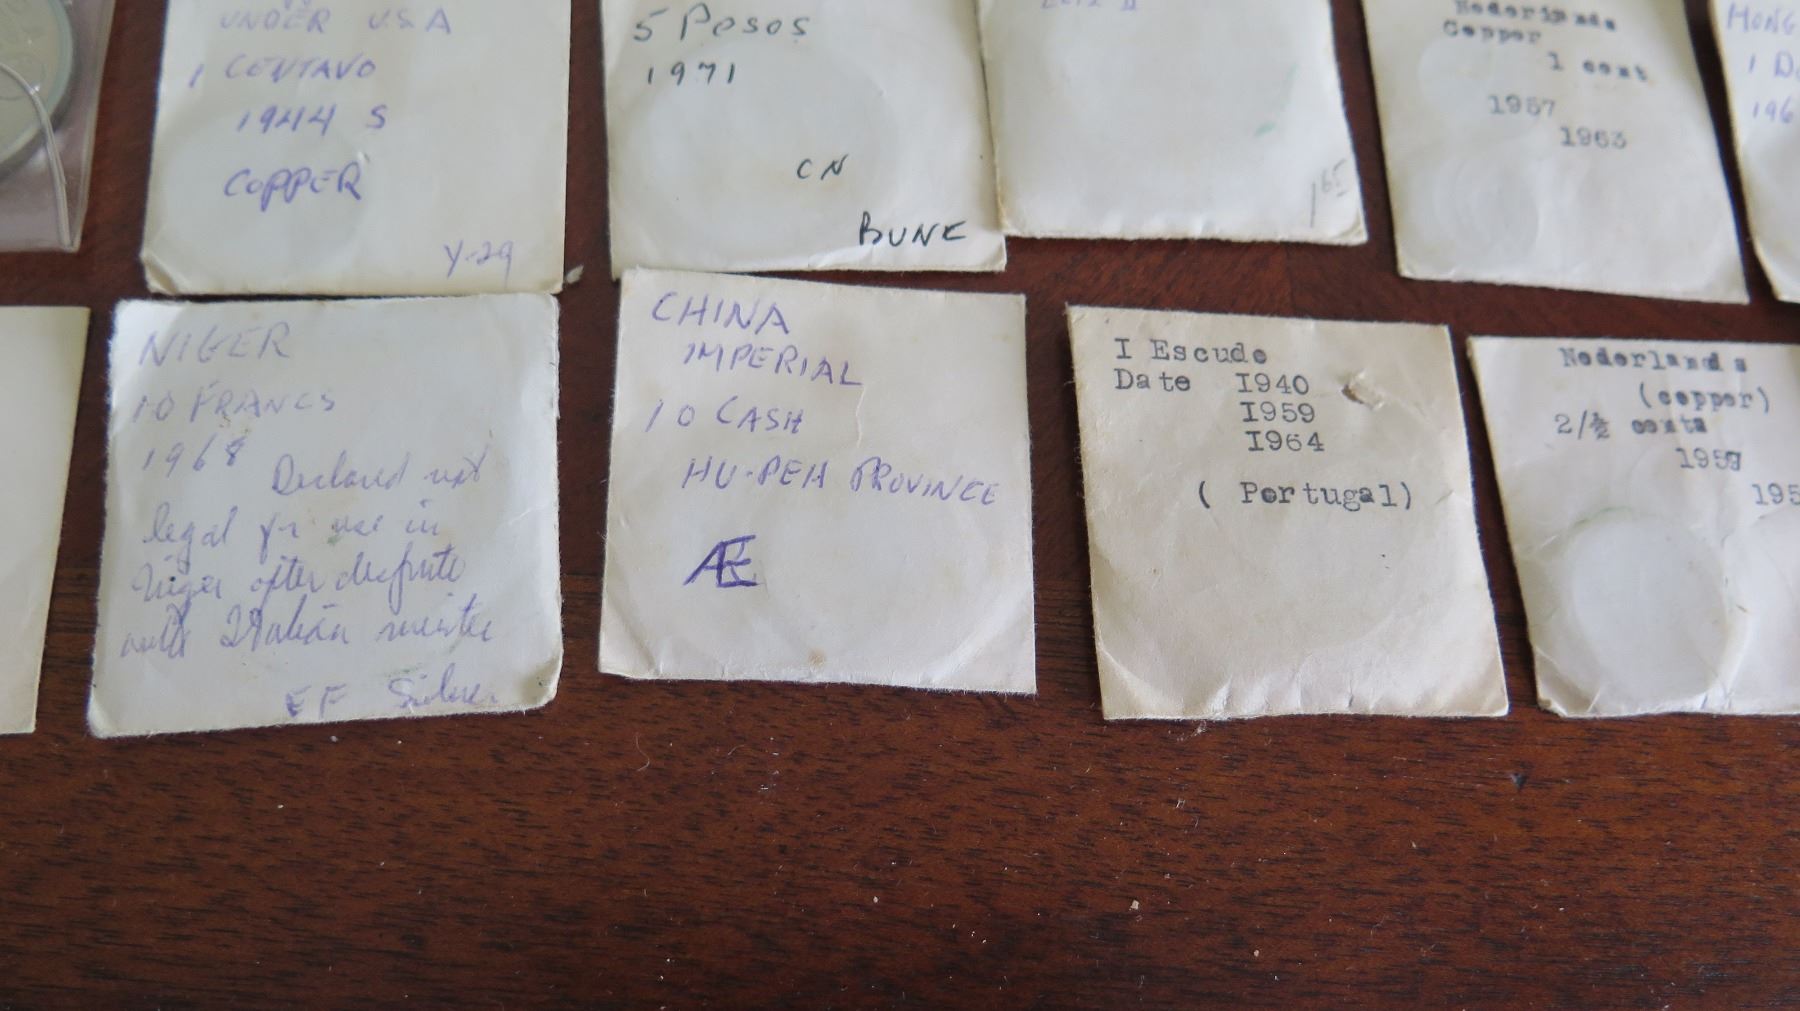 UNDER U.S.A
1 CENTAVO
1944 S
COPPER
Y-29
5 Pesos
1971
CN
BUNC
1 65
Nederlands
Copper
1 cent
1957
1963
MONG
1 Do
196
NIGER
10 FRANCS
1968
Declared not
legal for use in
Niger after dispute
with Italian
EF Silver
CHINA
IMPERIAL
10 CASH
HU-PEH PROVINCE
Æ
I Escudo
Date I940
I959
I964
( Portugal)
Nederlands
(copper)
2/½ cents
1959
195